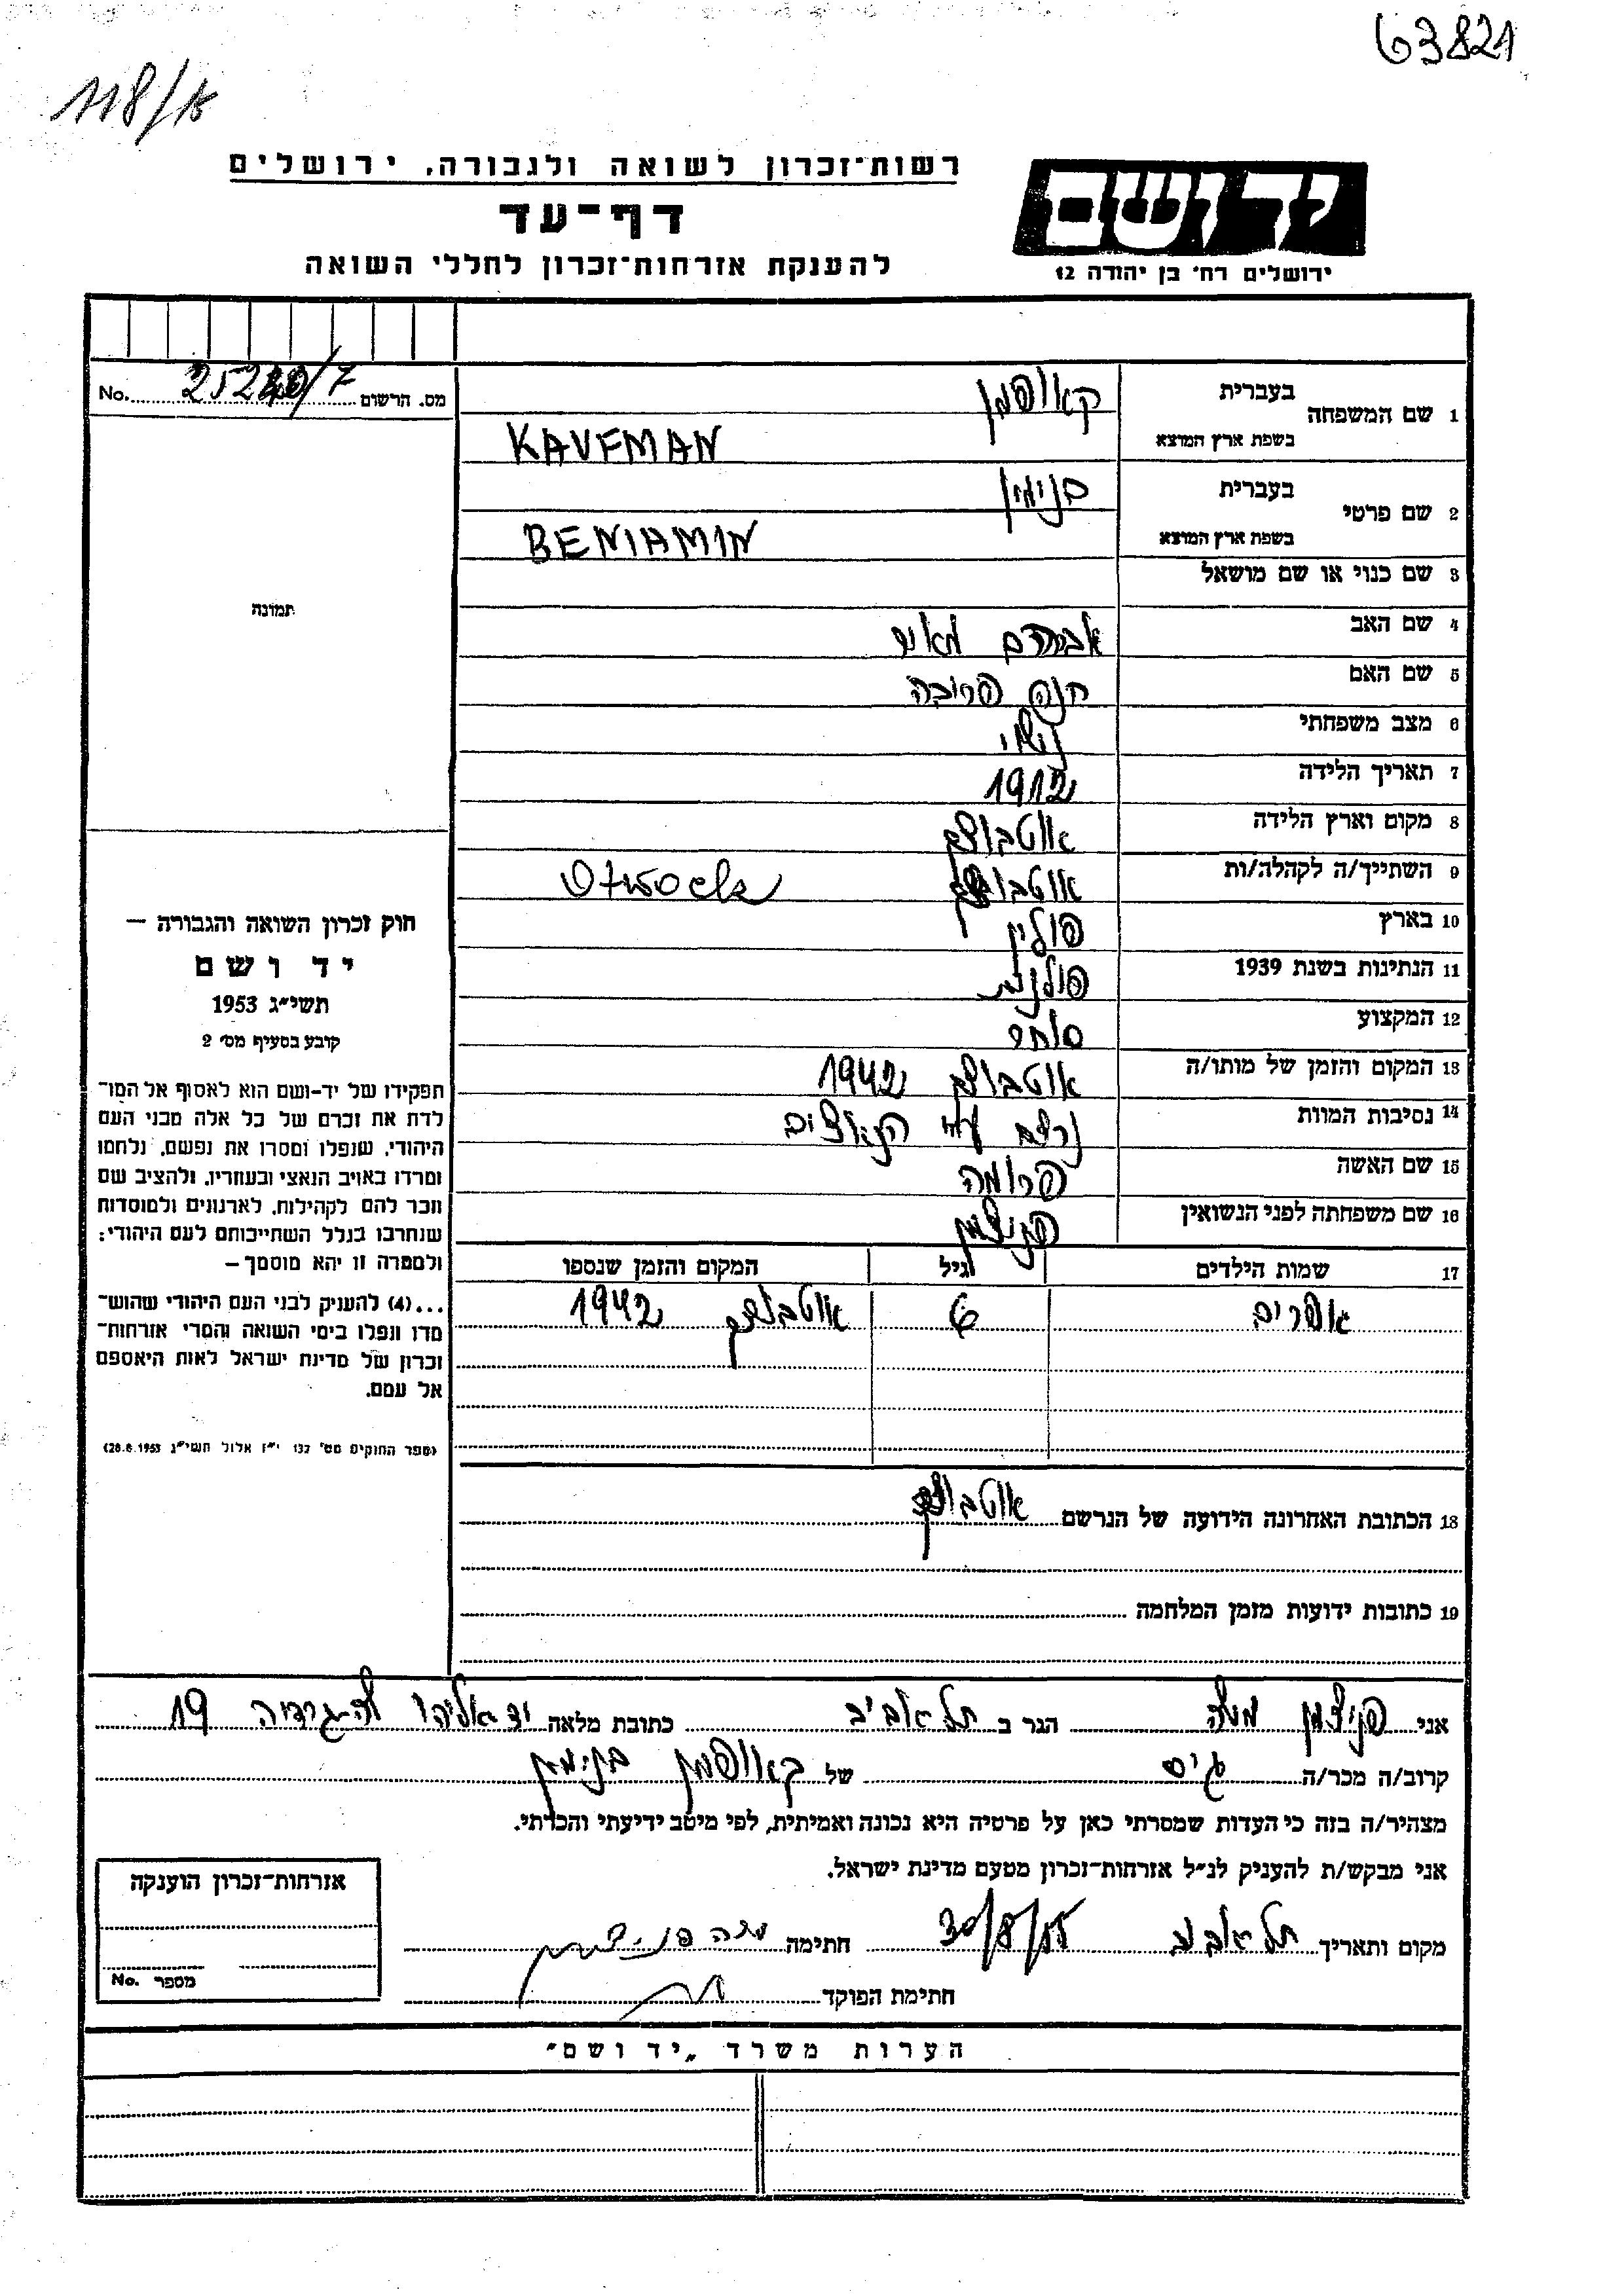 63821
118/א
רשות־זכרון לשואה ולגבורה, ירושלים
דף־עד
להענקת אזרחות־זכרון לחללי השואה
יד ושם
ירושלים רח׳ בן יהודה 12
מס. הרשום 7/ No.
1 שם המשפחה
בעברית קאופמן
בשפת ארץ המוצא KAUFMAN
2 שם פרטי
בעברית בנימין
בשפת ארץ המוצא BENIAMIN
3 שם כנוי או שם מושאל
תמונה
4 שם האב אברהם מאיר
5 שם האם חנה
6 מצב משפחתי נשוי
7 תאריך הלידה 1912
8 מקום וארץ הלידה אוטבוצק
9 השתייך/ה לקהלה/ות אוטבוצק Otwock
10 בארץ פולין
11 הנתינות בשנת 1939 פולנית
12 המקצוע סוחר
13 המקום והזמן של מותו/ה אוטבוצק 1942
14 נסיבות המוות נרצח ע״י הנאצים
15 שם האשה פרומה
16 שם משפחתה לפני הנשואין פניצמן
17 שמות הילדים גיל המקום והזמן שנספו
אפרים 6 אוטבוצק 1942
18 הכתובת האחרונה הידועה של הנרשם אוטבוצק
19 כתובות ידועות מזמן המלחמה
חוק זכרון השואה והגבורה –
יד ושם
תשי״ג 1953
קובע בסעיף מס׳ 2
תפקידו של יד-ושם הוא לאסוף אל המו־
לדת את זכרם של כל אלה מבני העם
היהודי, שנפלו ומסרו את נפשם, נלחמו
ומרדו באויב הנאצי ובעוזריו, ולהציב שם
וזכר להם לקהילות, לארגונים ולמוסדות
שנחרבו בגלל השתייכותם לעם היהודי;
ולמטרה זו יהא מוסמך –
...(4) להעניק לבני העם היהודי שהוש־
מדו ונפלו בימי השואה והמרי אזרחות־
זכרון של מדינת ישראל לאות היאספם
אל עמם.
(ספר החוקים מס׳ 132 י״ז אלול תשי״ג 28.8.1953)
אני פניצמן משה הגר ב תל אביב כתובת מלאה יד אליהו 19
קרוב/ה מכר/ה גיס של קאופמן בנימין
מצהיר/ה בזה כי העדות שמסרתי כאן על פרטיה היא נכונה ואמיתית, לפי מיטב ידיעתי והכרתי.
אני מבקש/ת להעניק לנ״ל אזרחות־זכרון מטעם מדינת ישראל.
מקום ותאריך תל אביב חתימה משה פניצמן
חתימת הפוקד
אזרחות־זכרון הוענקה
מספר No.
הערות משרד „יד ושם״